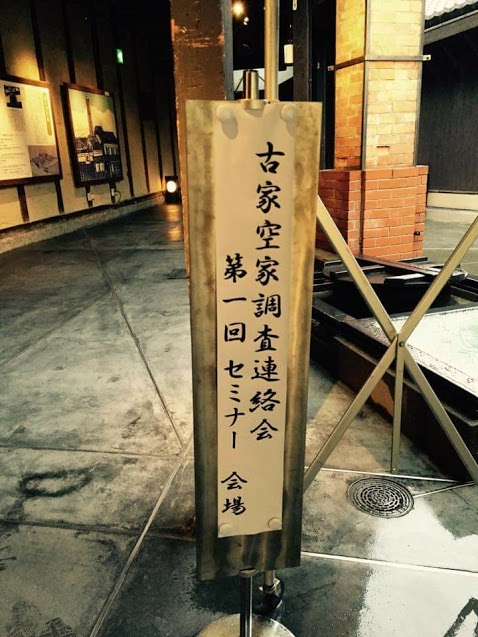 古家空家調査連絡会
第一回 セミナー 会場